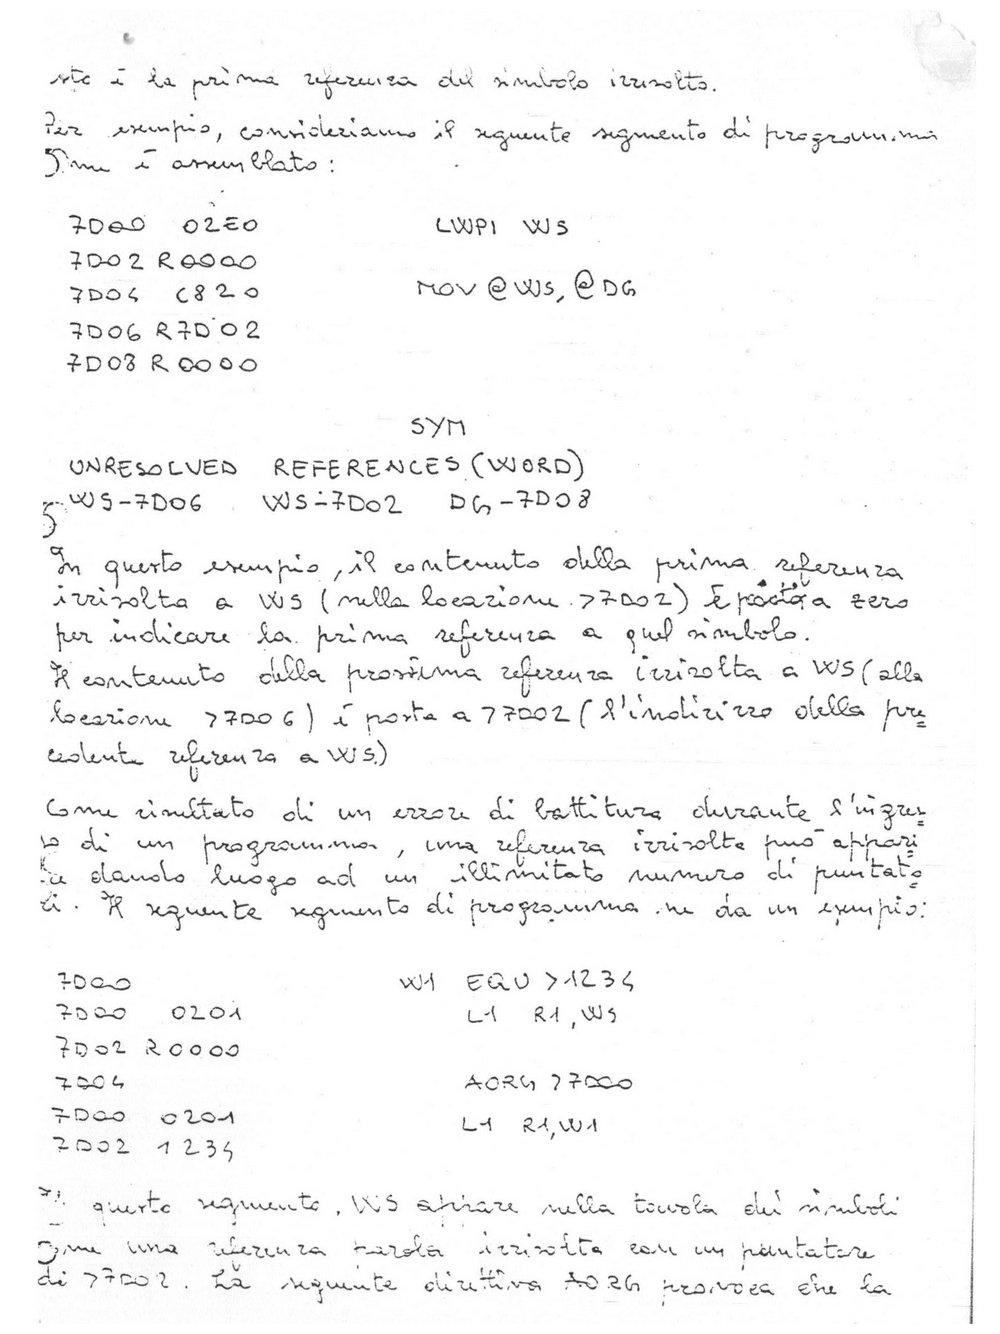 sta è la prima referenza del simbolo irrisolto.
Per esempio, consideriamo il seguente segmento di programma
come è assemblato:
7D00 02E0 LWPI WS
7D02 R0000
7D04 C820 MOV @WS, @DG
7D06 R7D02
7D08 R0000
SYM
UNRESOLVED REFERENCES (WORD)
WS-7D06 WS-7D02 DG-7D08
In questo esempio, il contenuto della prima referenza
irrisolta a WS (nella locazione >7D02) è posto a zero
per indicare la prima referenza a quel simbolo.
Il contenuto della prossima referenza irrisolta a WS (alla
locazione >7D06) è posta a >7D02 (l'indirizzo della pre=
cedente referenza a WS.)
Come risultato di un errore di battitura durante l'ingres=
so di un programma, una referenza irrisolta può appari=
re dando luogo ad un illimitato numero di puntato=
ri. Il seguente segmento di programma ne da un esempio:
7D00 W1 EQU >1234
7D00 0201 LI R1,WS
7D02 R0000
7D04 AORG >7D00
7D00 0201 LI R1,W1
7D02 1234
In questo segmento, WS appare nella tavola dei simboli
come una referenza parola irrisolta con un puntatore
di >7D02. La seguente direttiva AORG provoca che la